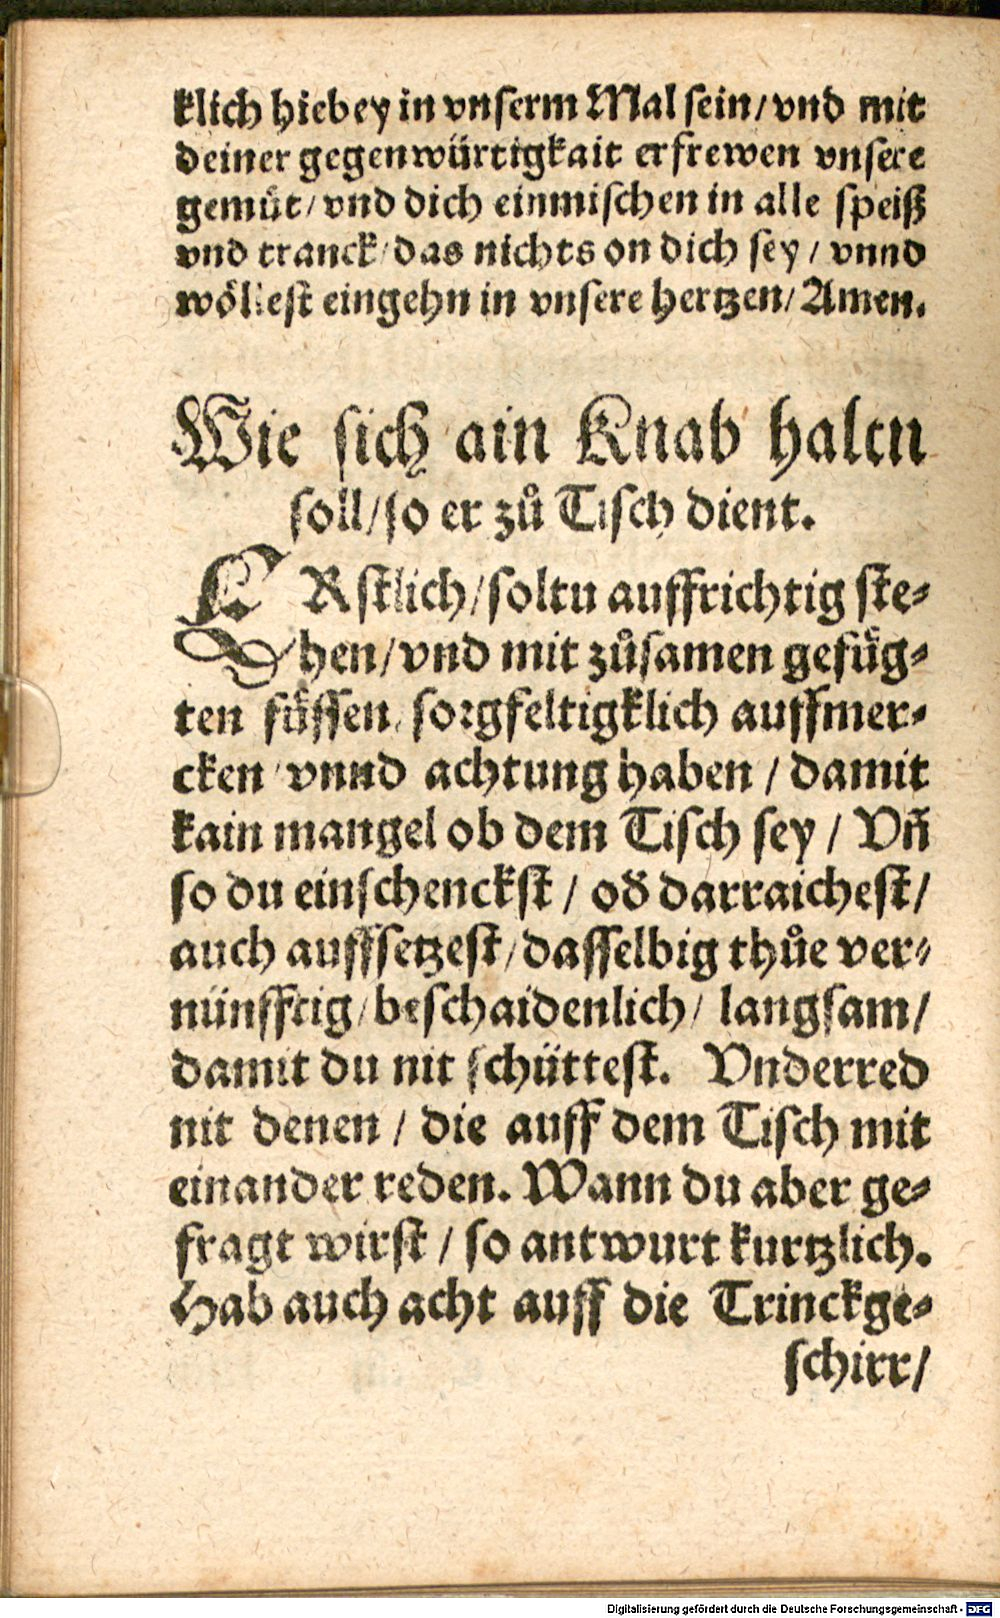 klich hiebey in vnserm Mal sein / vnd mit
deiner gegenwürtigkait erfrewen vnsere
gemüt / vnd dich einmischen in alle speiß
vnd tranck / das nichts on dich sey / vnnd
wöllest eingehn in vnsere hertzen / Amen.
Wie sich ain Knab haltn
soll / so er zů Tisch dient.
ERstlich / soltu auffrichtig ste-
hen / vnd mit zůsamen gefüg-
ten füssen / sorgfeltigklich auffmer-
cken / vnnd achtung haben / damit
kain mangel ob dem Tisch sey / Vñ
so du einschenckst / oď darraichest /
auch auffsetzest / dasselbig thůe ver-
nünfftig / beschaidenlich / langsam /
damit du nit schüttest. Vnderred
nit denen / die auff dem Tisch mit
einander reden. Wann du aber ge-
fragt wirst / so antwurt kurtzlich.
Hab auch acht auff die Trinckge-
schirr /
Digitalisierung gefördert durch die Deutsche Forschungsgemeinschaft - DFG